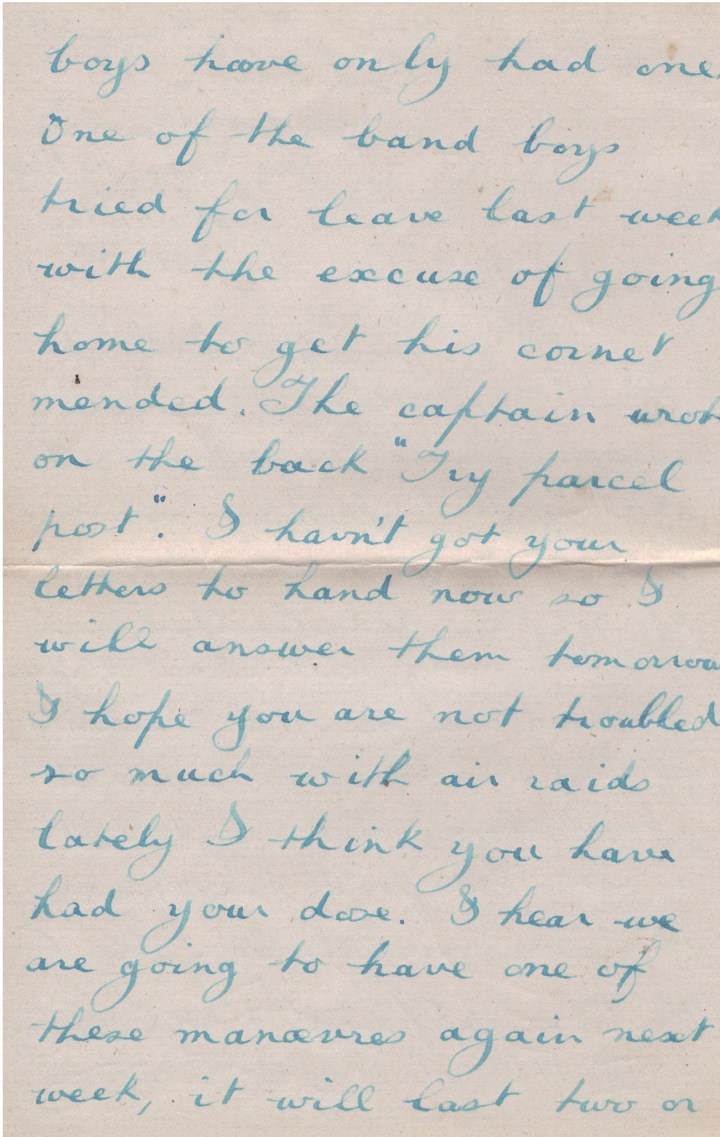 boys have only had one.
One of the band boys
tried for leave last week
with the excuse of going
home to get his cornet
mended. The captain wrot
on the back "Try parcel
post". I havn't got your
letters to hand now so I
will answer them tomorrow
I hope you are not troubled
so much with air raids
lately I think you have
had your dose. I hear we
are going to have one of
these manœvres again next
week, it will last two or